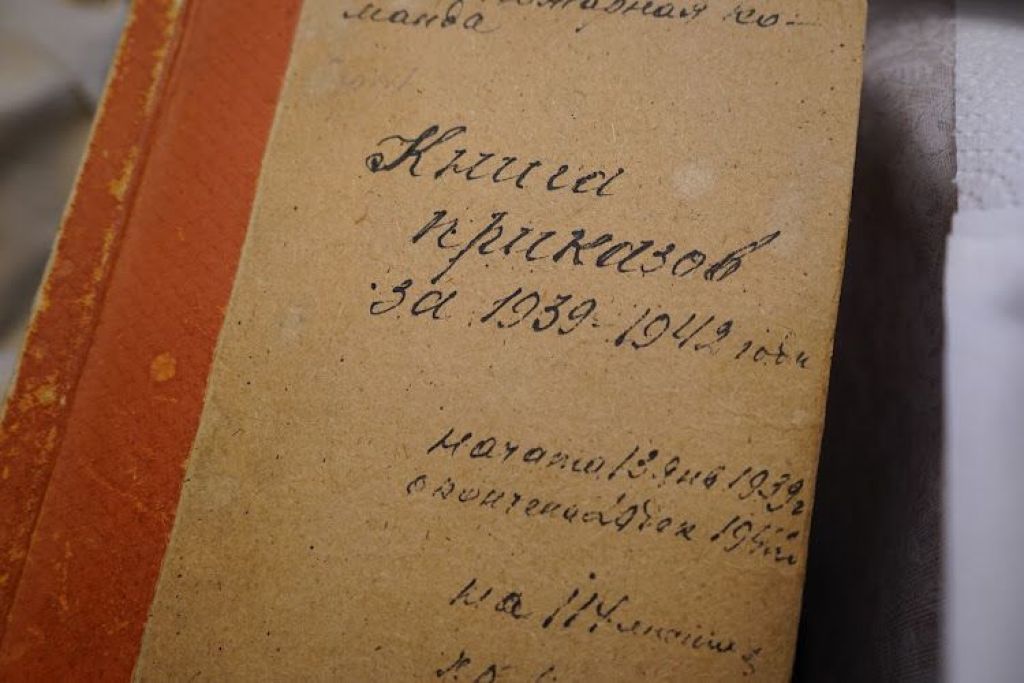 пожарная ко-
манда
Книга
приказов
за 1939-1942 годы
начата 13 янв 1939г
окончена дек
на 114 листах